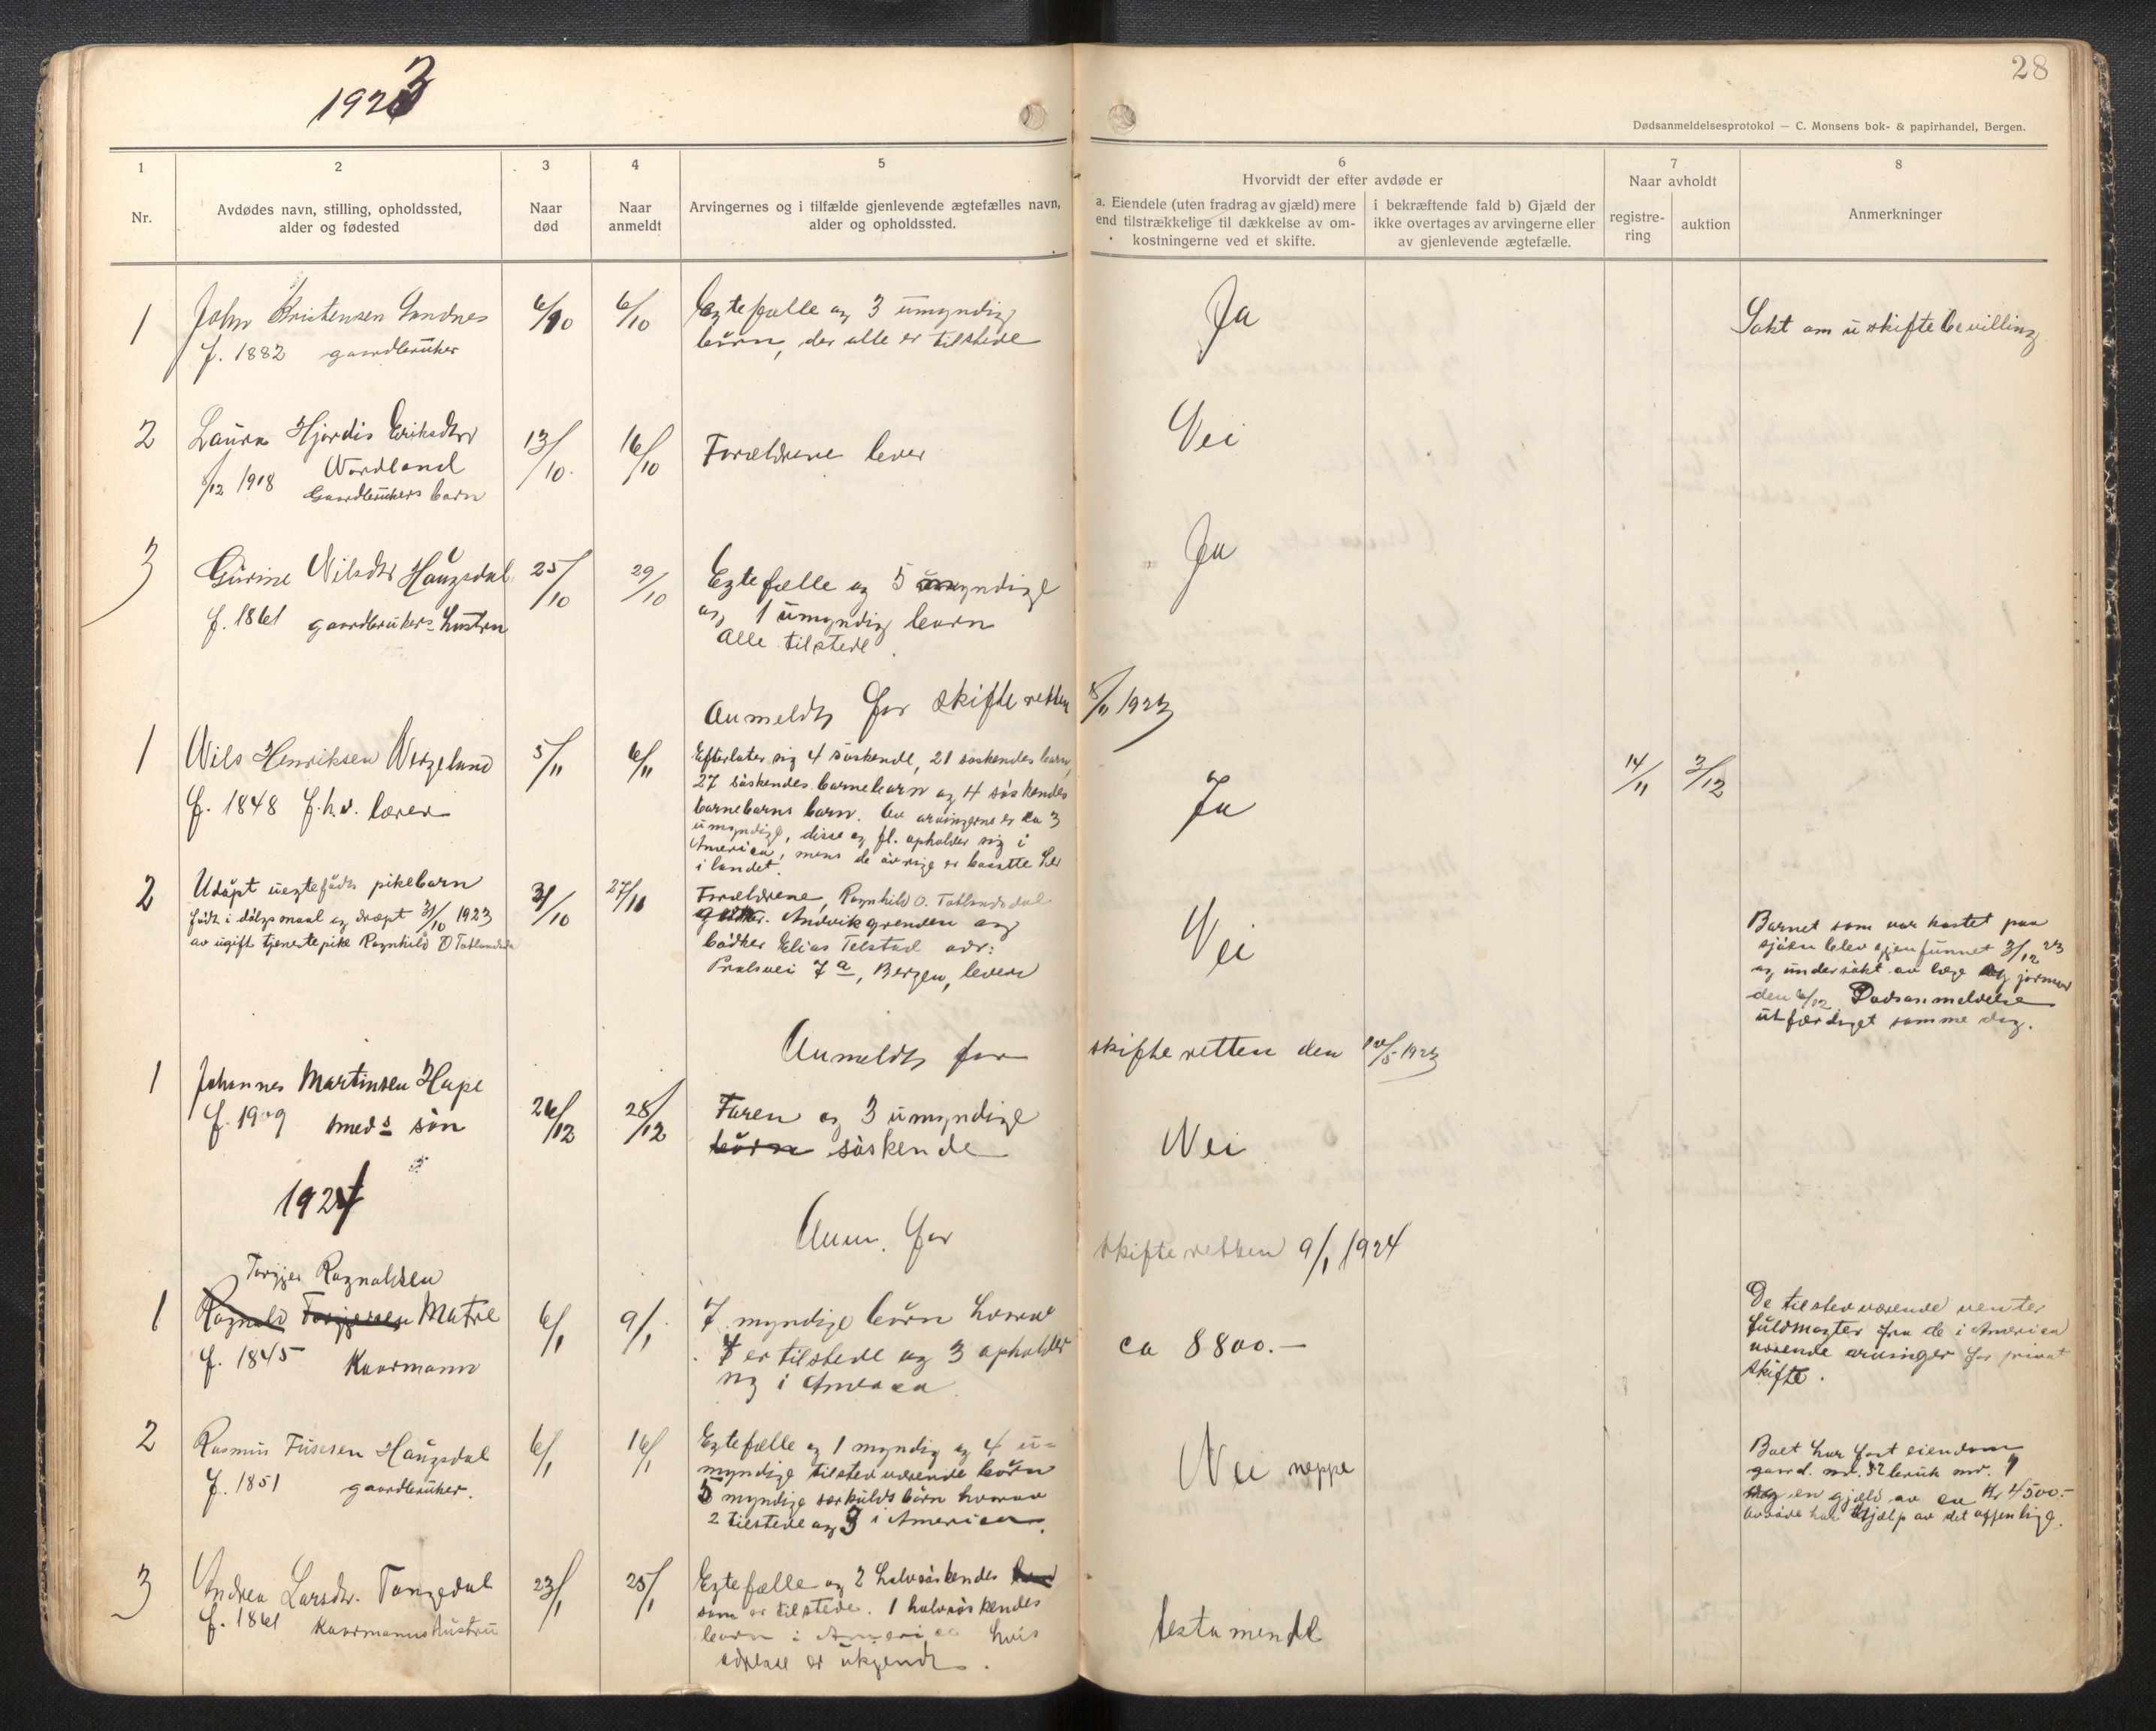 28
1923
Dødsanmeldelsesprotokol — C. Monsens bok- & papirhandel, Bergen.
1
2
3
4
5
6
7
8
Nr.
Avdødes navn, stilling, opholdssted,
alder og fødested
Naar
død
Naar
anmeldt
Arvingernes og i tilfælde gjenlevende ægtefælles navn,
alder og opholdssted.
Hvorvidt der efter avdøde er
a. Eiendele (uten fradrag av gjæld) mere
end tilstrækkelige til dækkelse av om-
kostningerne ved et skifte.
i bekræftende fald b) Gjæld der
ikke overtages av arvingerne eller
av gjenlevende ægtefælle.
Naar avholdt
registre-
ring
auktion
Anmerkninger
1
John Kristensen Sandnes
f. 1882 gaardbruker
6/10
6/10
Egtefælle og 3 umyndig
børn, der alle er tilstede
Ja
Søkt om uskiftebevilling
2
Laura Hjørdis Eriksdtr
Nordland
/12 1918
Gaardbrukers barn
13/10.
16/10
Forældrene lever
Nei
3
Gurine Nilsdtr Haugsdal
f. 1861 gaardbrukers hustru
25/10
29/10
Egtefælle og 5 myndige
og 1 umyndig barn
alle tilstede.
Ja
Anmeldt for skifteretten 8/11 1923
1
Nils Henriksen Wergeland
f. 1848 f.h.v. lærer
5/11
6/11
Efterlater sig 4 søskende, 21 søskendes barn,
27 søskendes barnebarn og 4 søskendes
barnebarns barn. Av arvingerne er ca 3
umyndige, disse og fl. opholder sig i
America, mens de øvrige er bosatte her
i landet.
Ja
14/11
3/12
2
Udøpt uegtefødt pikebarn
født i dølgsmaal og dræpt 31/10 1923
av ugift tjenestepike Ragnhild O Totlandsdal
31/10
27/11
Forældrene, Ragnhild O. Totlandsdal
Andvikgrenden og
bødker Elias Telstad adr:
7 a, Bergen, lever
Nei
Barnet som var kastet paa
sjøen blev igjenfunnet 3/12 23
og undersøkt av læge og jormor
den 6/12 Dødsanmeldelse
utfærdiget samme dag.
Anmeldt for skifteretten den /5 1923
1
Johannes Martinsen Hope
f. 1909 smeds søn
26/12
28/12
Faren og 3 umyndige
børn søskende
Nei
1924
Anm. for skifteretten 9/1 1924
1
Torgjer Ragnaldsen
Ragnald Torgjersen Matre
f. 1845 Kaarmann
6/1
9/1.
7 myndige børn hvorav
4 er tilstede og 3 opholder
sig i America.
ca 8800.—
De tilstedværende venter
fuldmagter fra de i America
værende arvinger for privat
skifte.
2
Rasmus Haugsdal
f. 1851 gaardbruker.
6/1
16/1
Egtefælle og 1 myndig og 4 u=
myndige tilstedværende børn
5 myndige særkulds børn hvorav
2 tilstede og 3 i America.
Nei neppe
Boet har fast eiendom
gaard. nr. 32 bruk nr. 9
og en gjæld av ca Kr 4500.-
avdøde har hjælp av det offenlige.
3
Andrea Larsdtr. Tangedal
f. 1861 Kaarmannshustru
23/1
25/1
Egtefælle og 2 halvsøskendes barn
som er tilstede. 1 halvsøskendes
barn i America hvis
adresse er ukjendt.
testamente